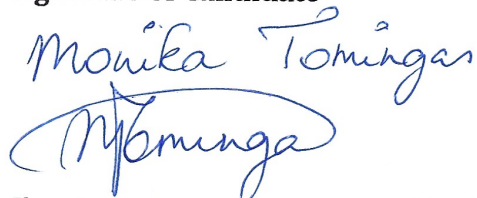 Monika Tomingas
MTominga